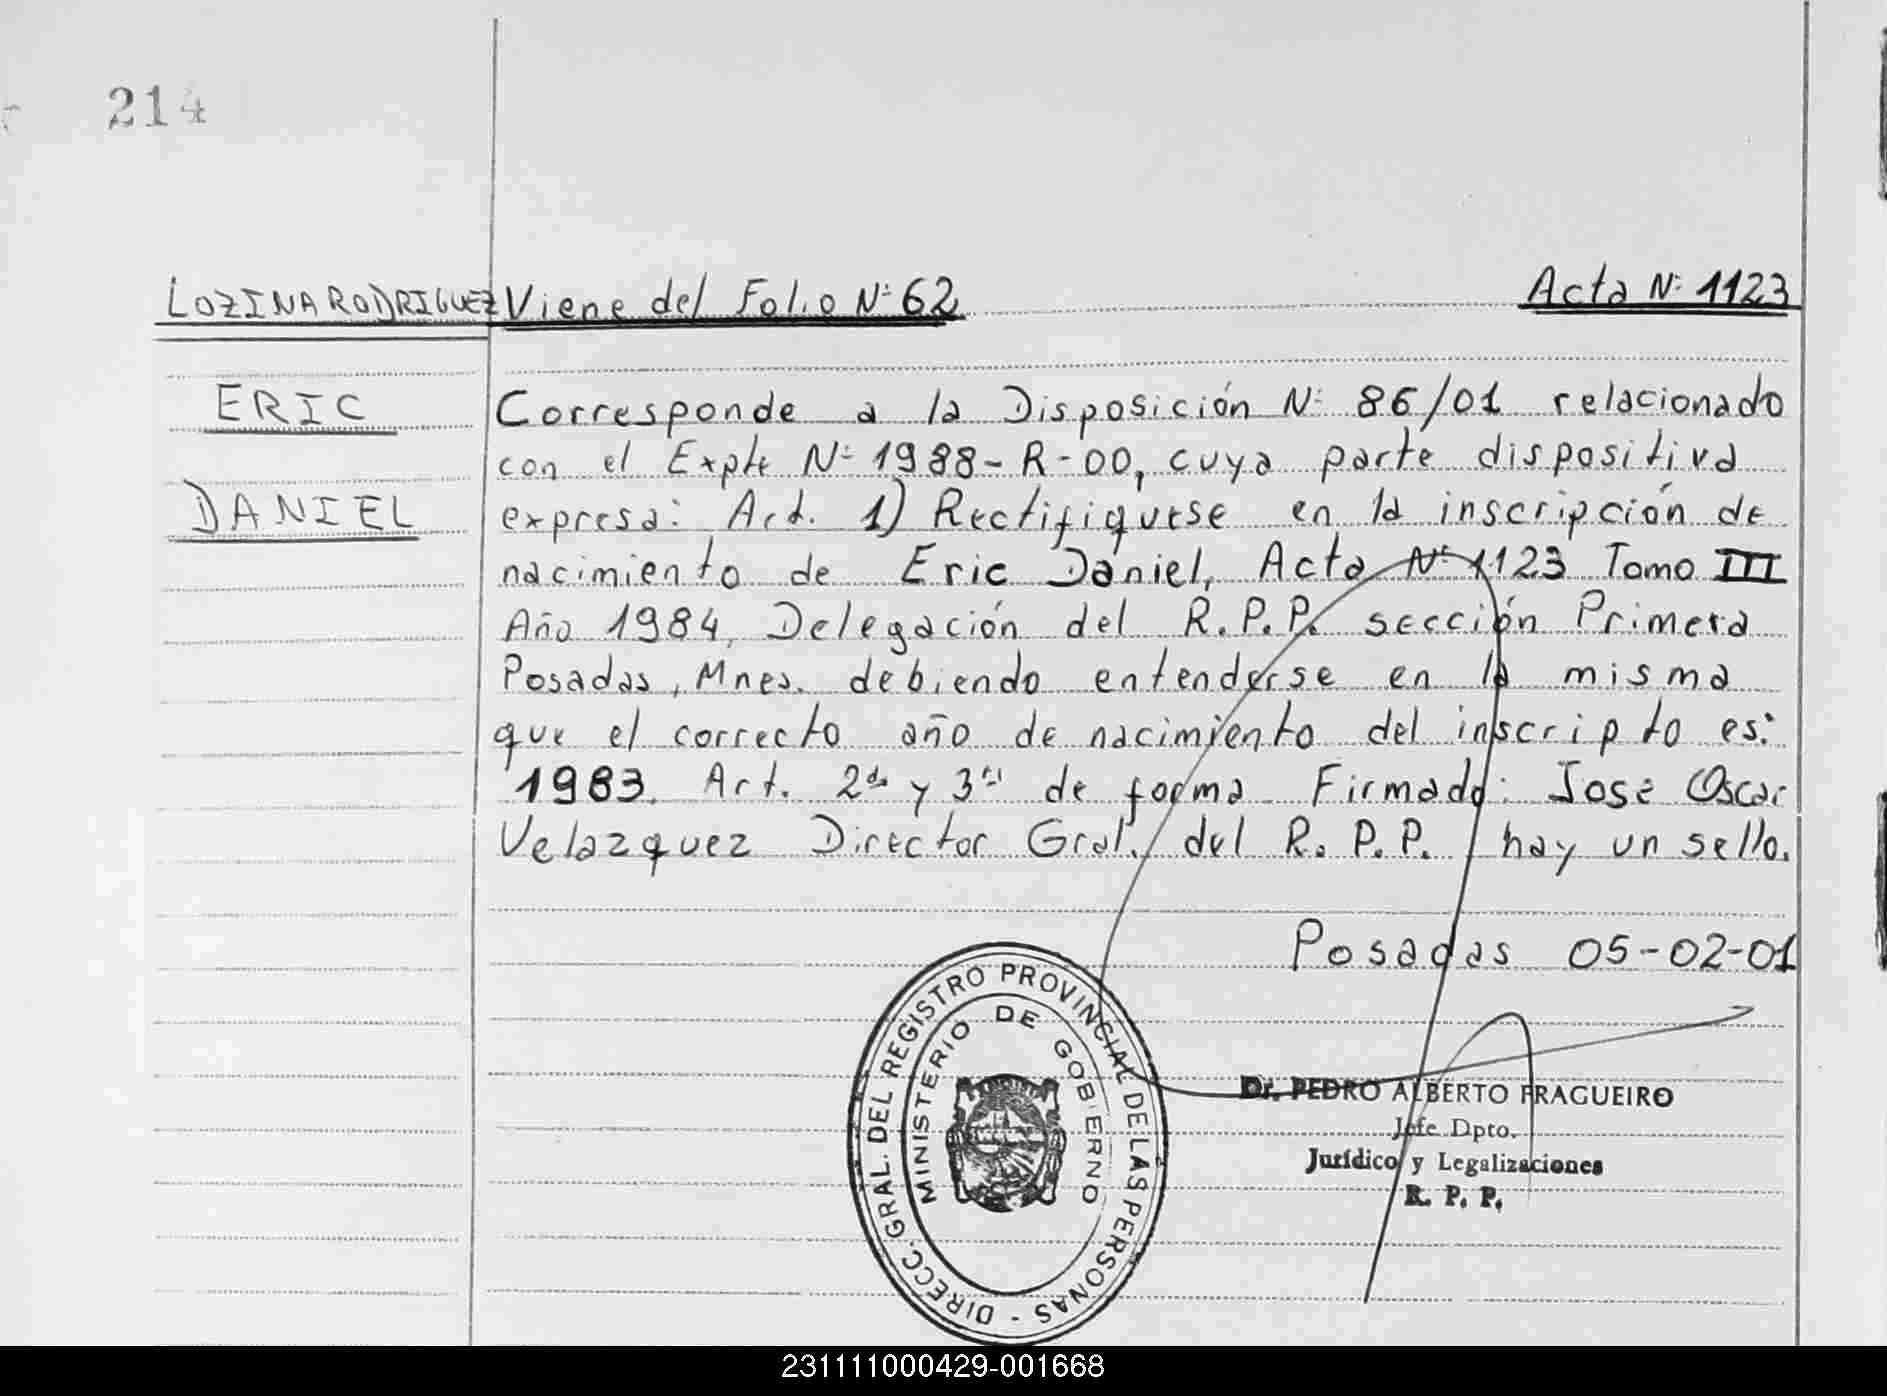 214
LOZINA RODRIGUEZ Viene del Folio Nº 62 Acta Nº 1123
ERIC
DANIEL
Corresponde a la Disposición Nº 86/01 relacionado
con el Expte Nº 1988-R-00, cuya parte dispositiva
expresa: Art. 1) Rectifiquese en la inscripción de
nacimiento de Eric Daniel, Acta Nº 1123 Tomo III
Año 1984, Delegación del R.P.P. sección Primera
Posadas, Mnes. debiendo entenderse en la misma
que el correcto año de nacimiento del inscripto es:
1983. Art. 2do y 3ro de forma Firmado: Jose Oscar
Velazquez Director Gral. del R.P.P. hay un sello.
Posadas 05-02-01
DIRECC. GRAL. DEL REGISTRO PROVINCIAL DE LAS PERSONAS -
MINISTERIO DE GOBIERNO
Dr. PEDRO ALBERTO FRAGUEIRO
Jefe Dpto.
Jurídico y Legalizaciones
R. P. P.
231111000429-001668